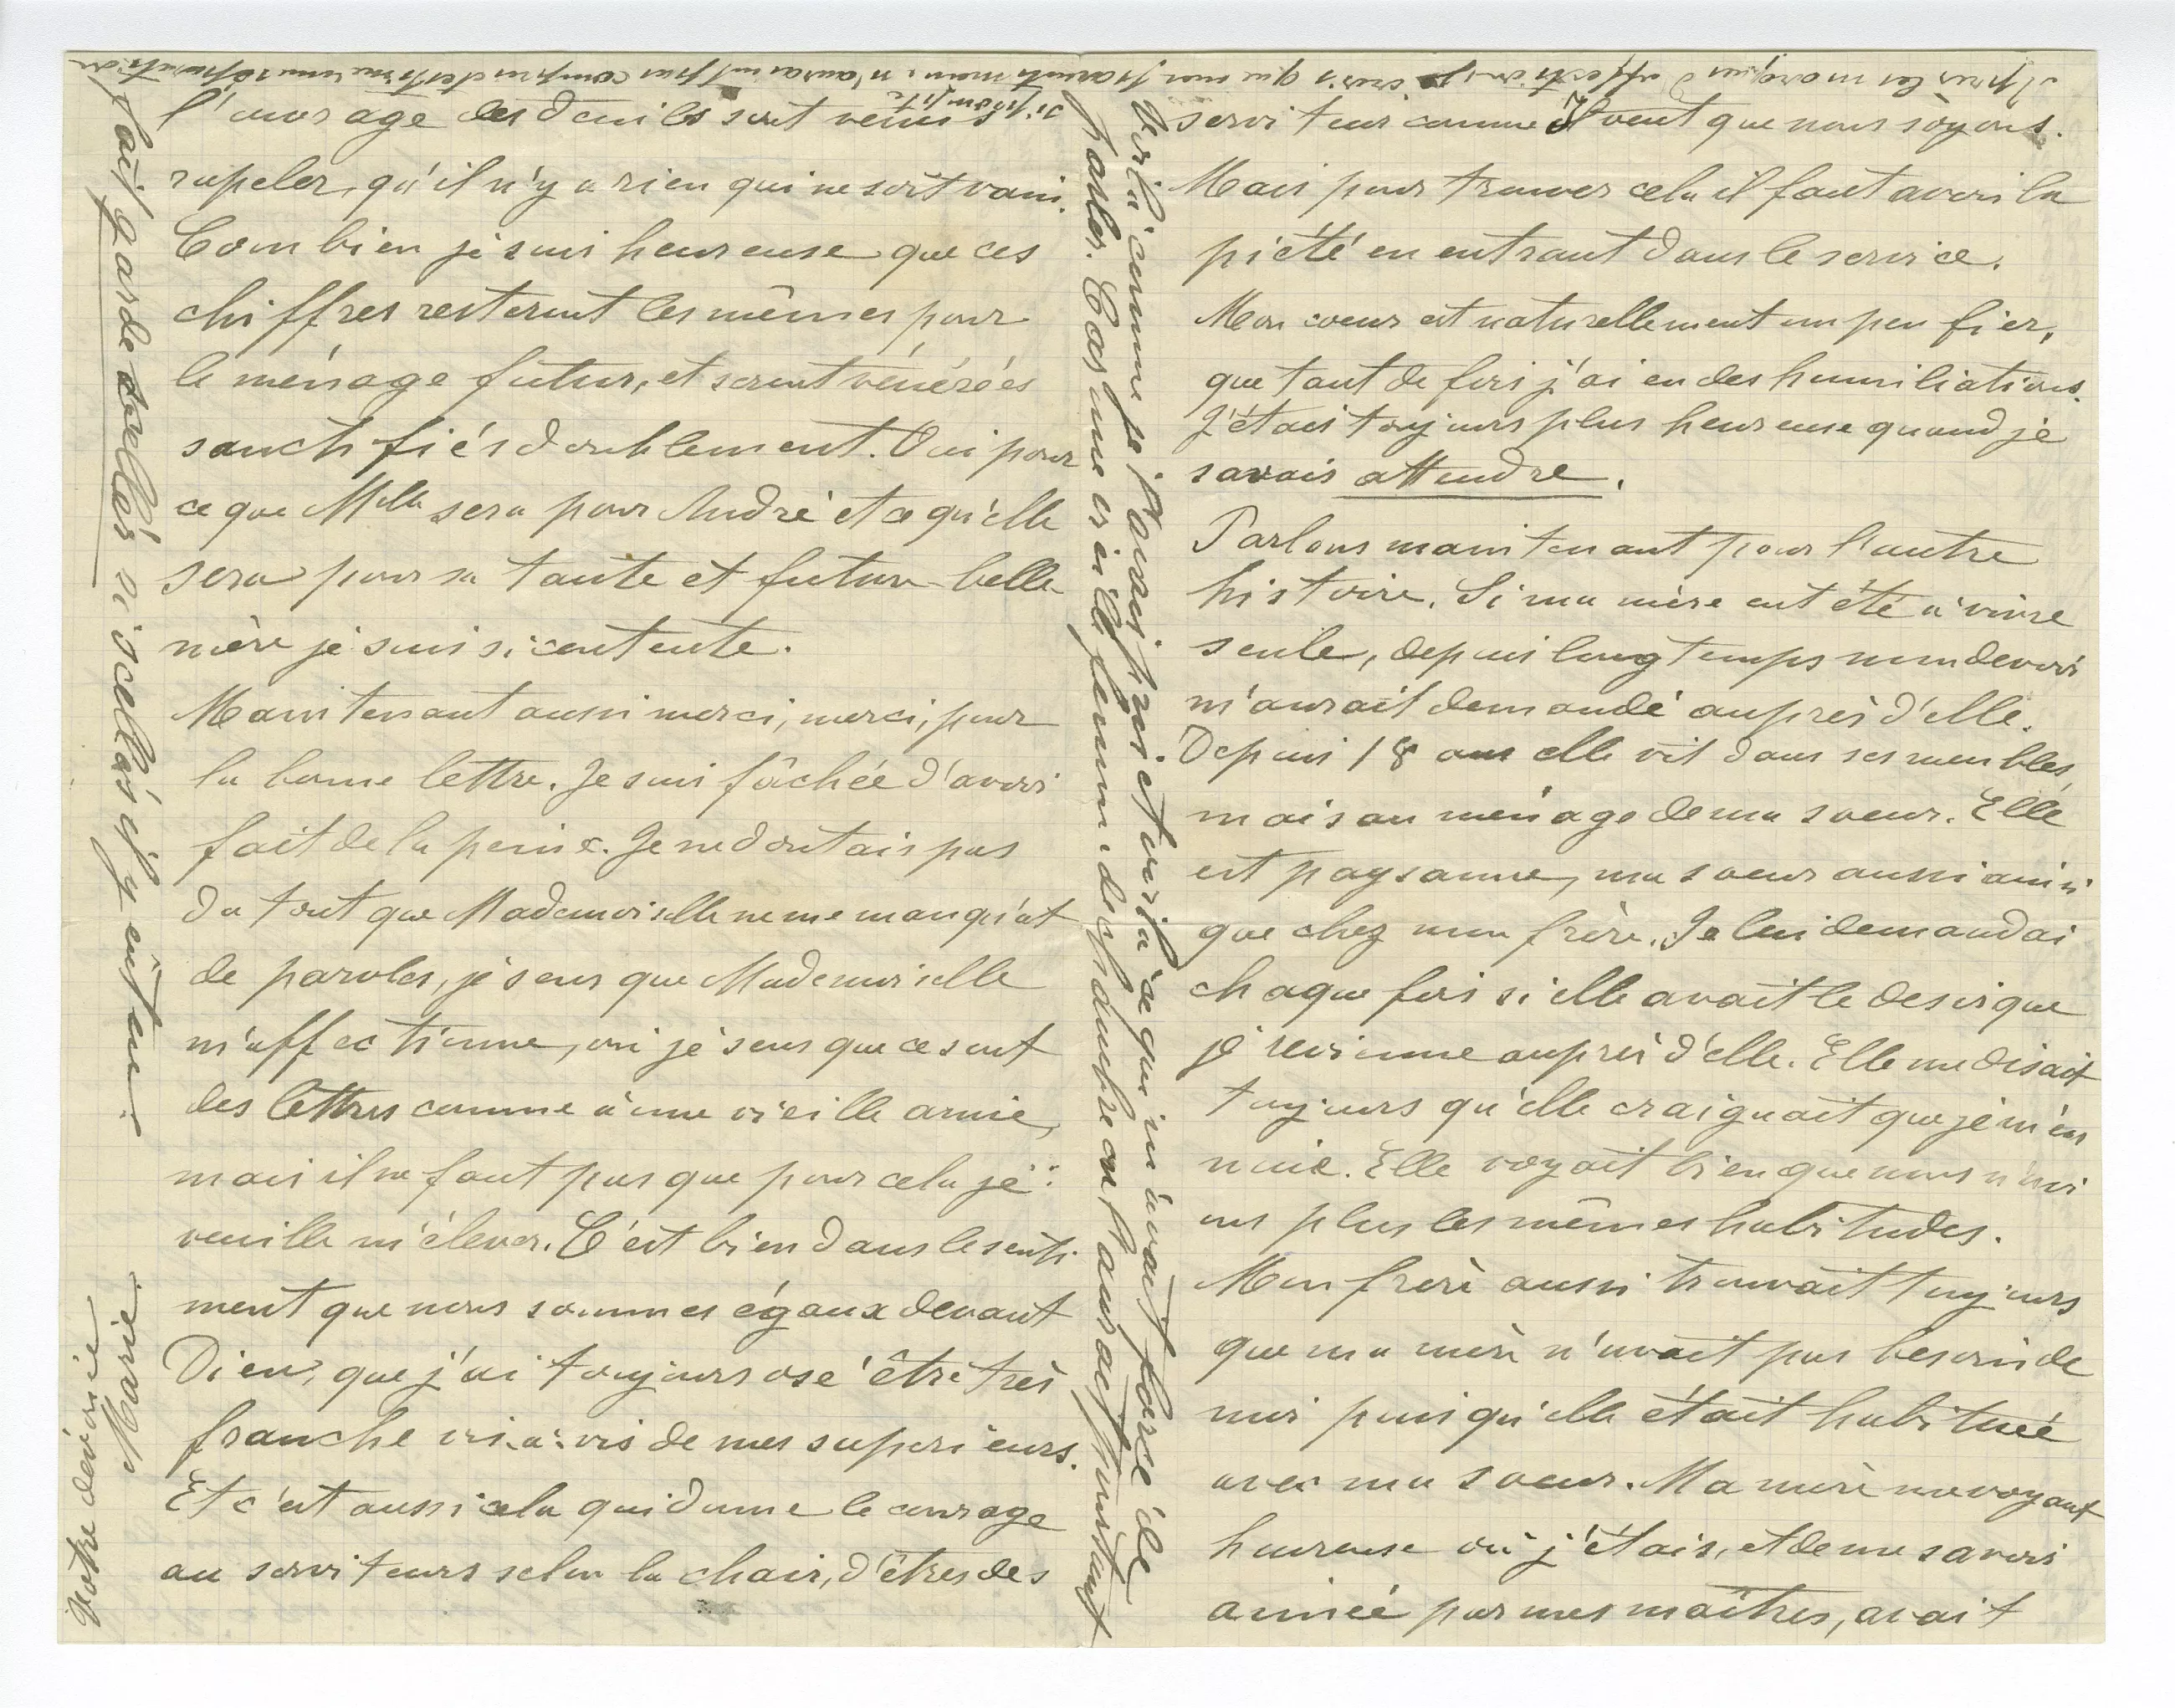 l'ouvrage des deuils sont venus
rapeler, qu'il n'y a rien qui ne soit vain.
Combien je suis heureuse que ces
chiffres resteront les mêmes pour
le ménage futur, et seront vénérées
sanctifiés doublement. Oui pour
ce que Mlle sera pour André et ce qu'elle
sera pour sa tante et future belle-
mère je suis si contente.
Maintenant aussi merci, merci, pour
la bonne lettre. Je suis fâchée d'avoir
fait de la peine. Je ne doutais pas
du tout que Mademoiselle ne me manqu'ât
de paroles, je sens que Mademoiselle
m'affectionne, oui je sens que ce sont
des lettres comme à une vieille amie,
mais il ne faut pas que pour cela je
veuille m'élever. C'est bien dans le senti-
ment que nous sommes égaux devant
Dieu, que j'ai toujours osé être très
franche vis-à-vis de mes supérieurs.
Et c'est aussi cela qui donne le courage
au serviteurs selon la chair, d'êtres des
serviteur comme Il veut que nous soyons.
Mais pour trouver cela il faut avoir la
piété en entrant dans le service.
Mon coeur est naturellement un peu fier,
que tant de fois j'ai eu des humiliations.
J'étais toujours plus heureuse quand je
savais attendre.
Parlons maintenant pour l'autre
histoire. Si ma mère eut été à vivre
seule, depuis longtemps mon devoir
m'aurait demandé auprès d'elle.
Depuis 18 ans elle vit dans ses meubles,
mais au ménage de ma soeur. Elle
est paysanne, ma soeur aussi ainsi
que chez mon frère. Je lui demandai
chaque fois si elle avait le desir que
je revienne auprès d'elle. Elle me disait
toujours qu'elle craignait que je m'en
nuie. Elle voyait bien que nous n'avi
ons plus les mêmes habitudes.
Mon frère aussi trouvait toujours
que ma mère n'avait pas besoin de
moi puisqu'elle était habituée
avec ma soeur. Ma mère me voyant
heureuse où j'étais, et de me savoir
aimée par mes maîtres, avait
Voilà comme je pourrai et voilà ce qui m'avait forcé de
parler. Car une vieille femme de chambre on
Après les marques d'affection, je crois que mes parents mêmes n'auraient pas compris cette séparation
si prompte
fait garder ni s'y eût eu.
Votre dévouée
Marie